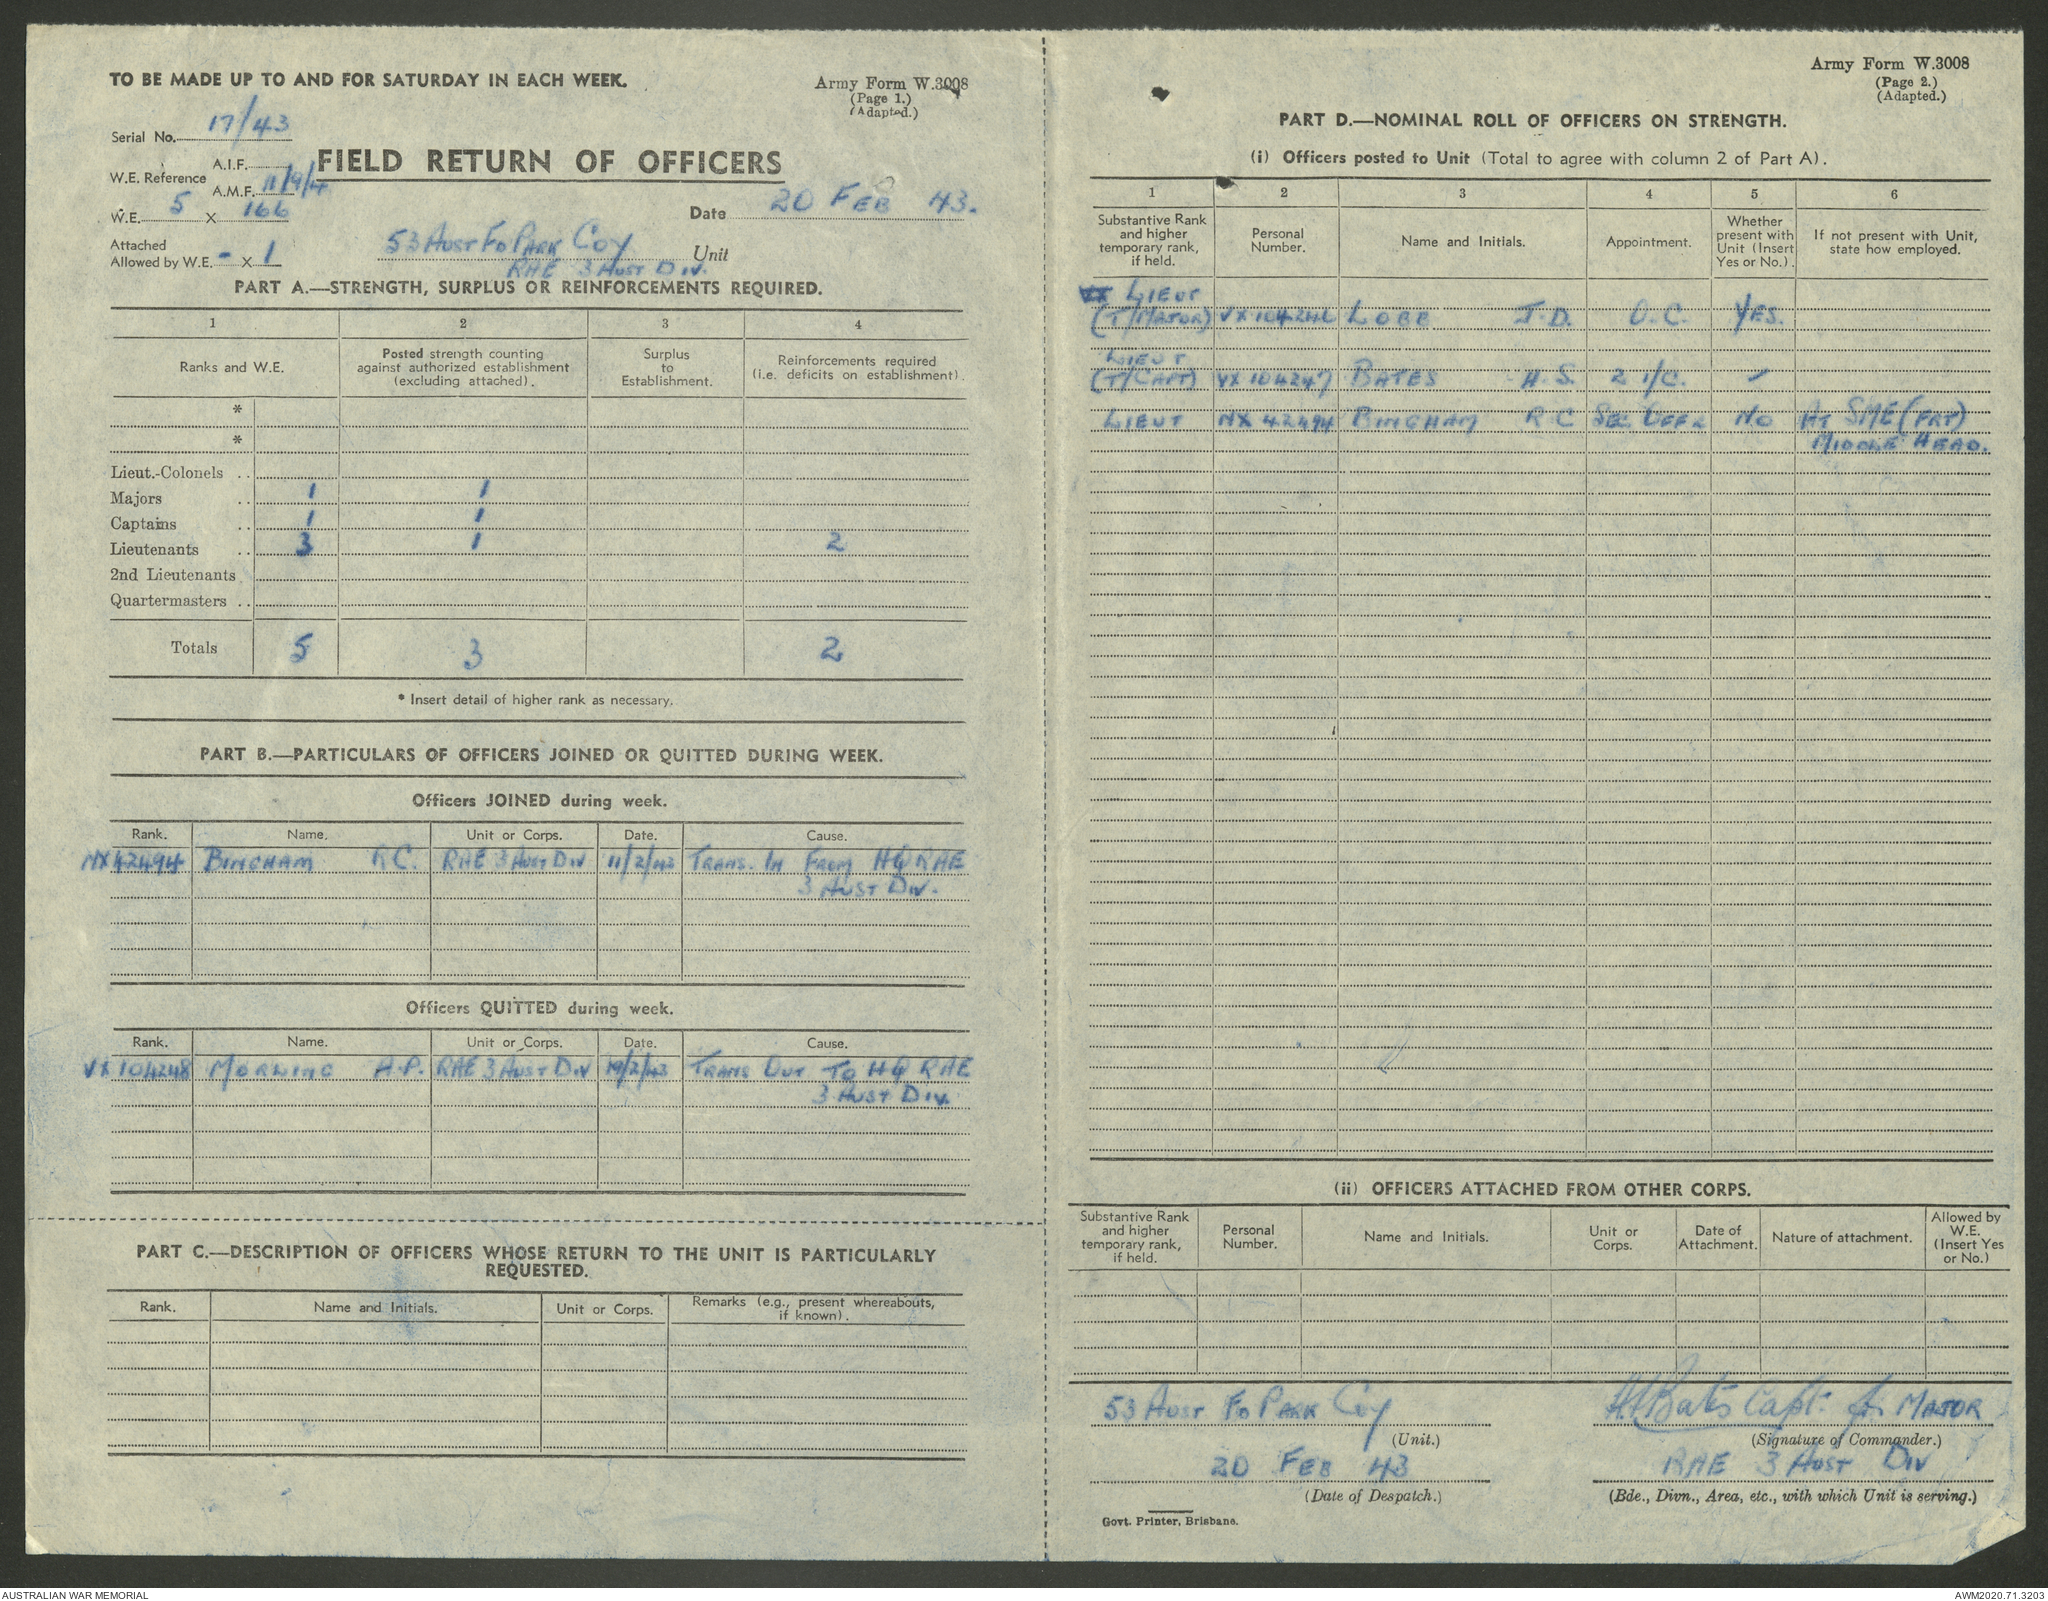 TO BE MADE UP TO AND FOR SATURDAY IN EACH WEEK.
Army Form W.3008
(Page 1.)
(Adapted.)
Serial No. 17/43
W.E. Reference
A.I.F.
A.M.F. 11/9/4
FIELD RETURN OF OFFICERS
W.E. 5 X 166
Date 20 FEB 43.
Attached
Allowed by W.E. - X 1
53 AUST FD PARK COY Unit
RAE 3 AUST DIV.
PART A.—STRENGTH, SURPLUS OR REINFORCEMENTS REQUIRED.
1 2 3 4
Ranks and W.E.
Posted strength counting
against authorized establishment
(excluding attached).
Surplus
to
Establishment.
Reinforcements required
(i.e. deficits on establishment).
*
*
Lieut.-Colonels ..
Majors .. 1 1
Captains .. 1 1
Lieutenants .. 3 1 2
2nd Lieutenants
Quartermasters ..
Totals 5 3 2
* Insert detail of higher rank as necessary.
PART B.—PARTICULARS OF OFFICERS JOINED OR QUITTED DURING WEEK.
Officers JOINED during week.
Rank. Name. Unit or Corps. Date. Cause.
NX42494 BINGHAM R.C. RAE 3 AUST DIV 11/2/43 TRANS. IN FROM HQ RAE
3 AUST DIV.
Officers QUITTED during week.
Rank. Name. Unit or Corps. Date. Cause.
VX104248 MORLING A.P. RAE 3 AUST DIV 19/2/43 TRANS OUT TO HQ RAE
3 AUST DIV.
PART C.—DESCRIPTION OF OFFICERS WHOSE RETURN TO THE UNIT IS PARTICULARLY
REQUESTED.
Rank. Name and Initials. Unit or Corps. Remarks (e.g., present whereabouts,
if known).
Army Form W.3008
(Page 2.)
(Adapted.)
PART D.—NOMINAL ROLL OF OFFICERS ON STRENGTH.
(i) Officers posted to Unit (Total to agree with column 2 of Part A).
1 2 3 4 5 6
Substantive Rank
and higher
temporary rank,
if held.
Personal
Number.
Name and Initials.
Appointment.
Whether
present with
Unit (Insert
Yes or No.)
If not present with Unit,
state how employed.
VX LIEUT
(T/MAJOR) LOBB J.D. O.C. YES.
LIEUT
(T/CAPT) VX 104247 BATES H.S. 2 I/C. "
LIEUT NX 42494 BINGHAM R C SEC OFFR NO AT SME (FRT)
MIDDLE HEAD.
(ii) OFFICERS ATTACHED FROM OTHER CORPS.
Substantive Rank
and higher
temporary rank,
if held.
Personal
Number.
Name and Initials.
Unit or
Corps.
Date of
Attachment.
Nature of attachment.
Allowed by
W.E.
(Insert Yes
or No.)
53 AUST FD PARK COY
(Unit.)
20 FEB 43
(Date of Despatch.)
HSBates Capt. for MAJOR
(Signature of Commander.)
RAE 3 AUST DIV
(Bde., Divn., Area, etc., with which Unit is serving.)
Govt. Printer, Brisbane.
AUSTRALIAN WAR MEMORIAL
AWM2020.71.3203